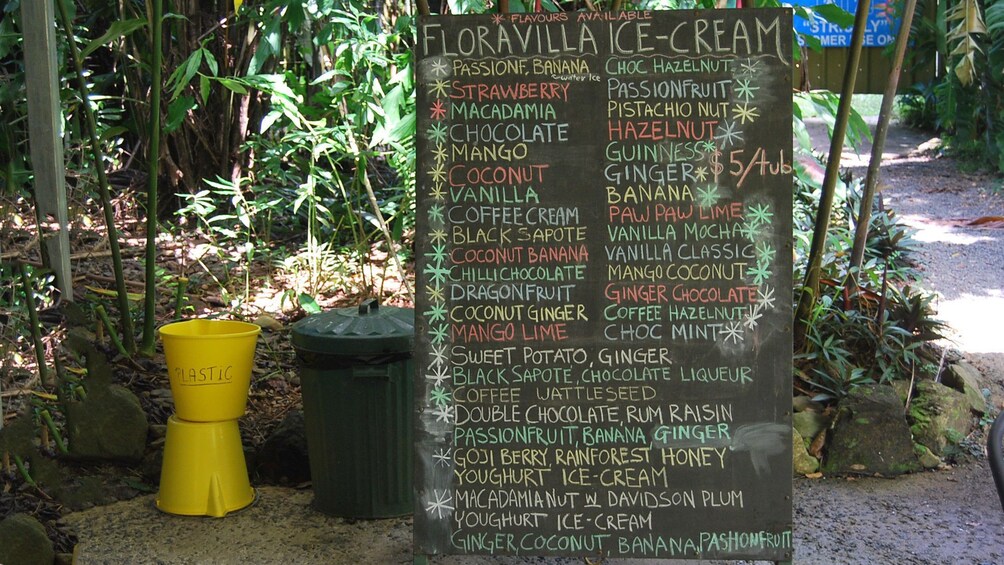 * FLAVOURS AVAILABLE
FLORAVILLA ICE-CREAM
PASSIONF, BANANA
STRAWBERRY
MACADAMIA
CHOCOLATE
MANGO
COCONUT
VANILLA
COFFEE CREAM
BLACK SAPOTE
COCONUT BANANA
CHILLI CHOCOLATE
DRAGONFRUIT
COCONUT GINGER
MANGO LIME
CHOC HAZELNUT
PASSIONFRUIT
PISTACHIO NUT
HAZELNUT
GUINNESS
GINGER
$5/tub
BANANA
PAW PAW LIME
VANILLA MOCHA
VANILLA CLASSIC
MANGO COCONUT
GINGER CHOCOLATE
COFFEE HAZELNUT
CHOC MINT
SWEET POTATO, GINGER
BLACK SAPOTE, CHOCOLATE LIQUEUR
COFFEE WATTLESEED
DOUBLE CHOCOLATE, RUM RAISIN
PASSIONFRUIT, BANANA GINGER
GOJI BERRY, RAINFOREST HONEY
YOUGHURT ICE-CREAM
MACADAMIA NUT W DAVIDSON PLUM
YOUGHURT ICE-CREAM
GINGER, COCONUT, BANANA, PASHIONFRUIT
PLASTIC
"STRICTLY"